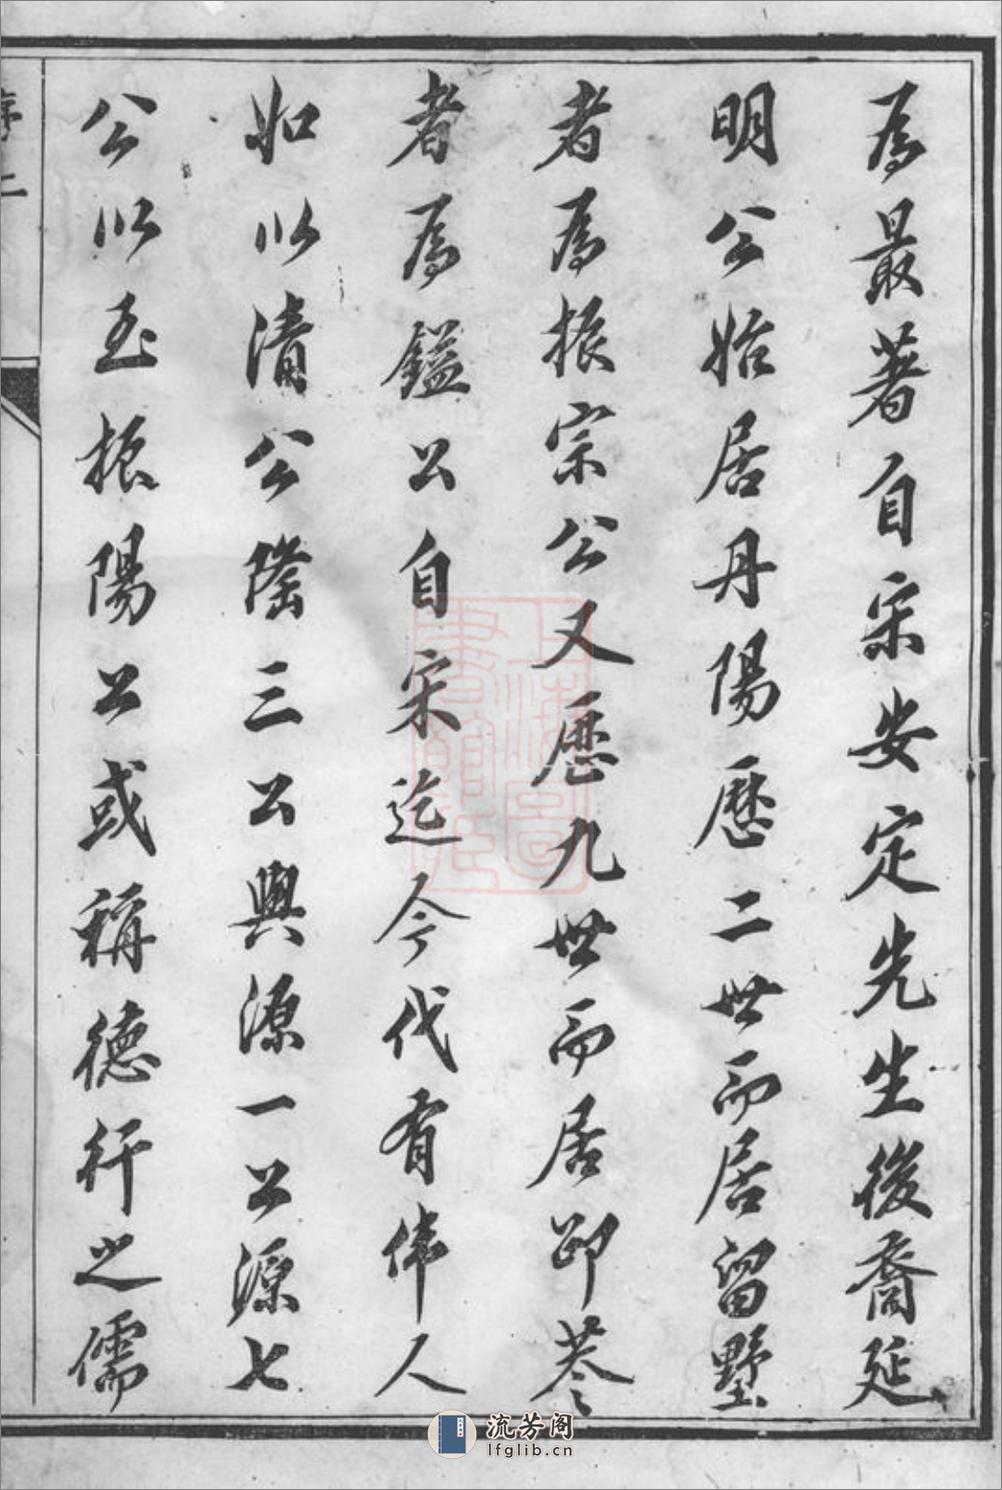 為最著自宋安定先生後裔延
明公始居丹陽歷二世而居留墅
者為振宗公又歷九世而居邵巷
者為鎰公自宋迄今代有偉人
如以清公隆三公與源一公源七
公以至振陽公或稱德行之儒
序
二
流芳阁
lfglib.cn